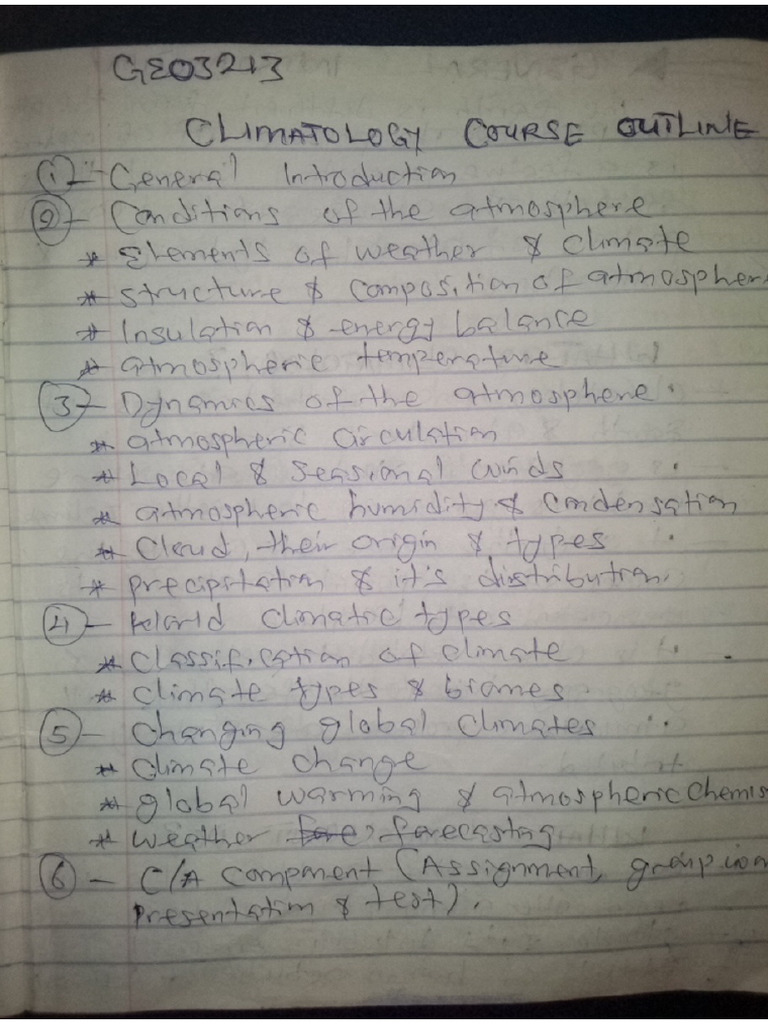 GEO3213
CLIMATOLOGY COURSE OUTLINE
(1) - General Introduction
(2) - Conditions of the atmosphere
* Elements of weather & climate
* structure & composition of atmospher
* Insulation & energy balance
* atmospheric temperature
(3) - Dynamics of the atmosphere.
* atmospheric circulation
* Local & seasional winds
* atmospheric humidity & condensation
* Cloud, their origin & types
* precipitation & it's distribution.
(4) - World climatic types
* classification of climate
* climate types & biomes.
(5) - Changing global climates
* climate change
* global warming & atmospheric chemis
* weather fore, forecasting
(6) - C/A component (Assignment, group wor
presentation & test).